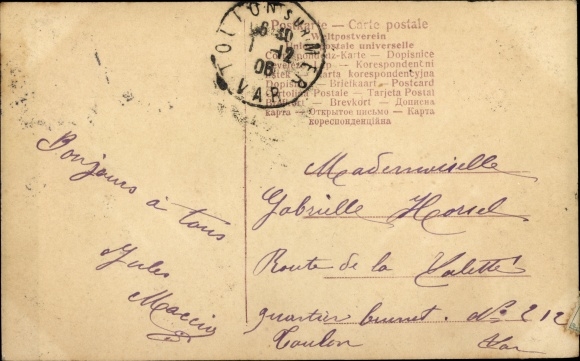 Postkarte – Carte postale
Weltpostverein
postale universelle
Correspondenz-Karte – Dopisnice
Korespondentni
karta korespondencyjna
Briefkaart – Postcard
Cartolina Postale – Tarjeta Postal
Brevkort – Дописна
карта – Открытое письмо – Карта
кореспонденційна
TOULON SUR MER
6 30
12
06
VAR
Bonjours à tous
Jules
Mademoiselle
Gabrielle
Route de la Valette
quartier brunet. No 212
Toulon Var